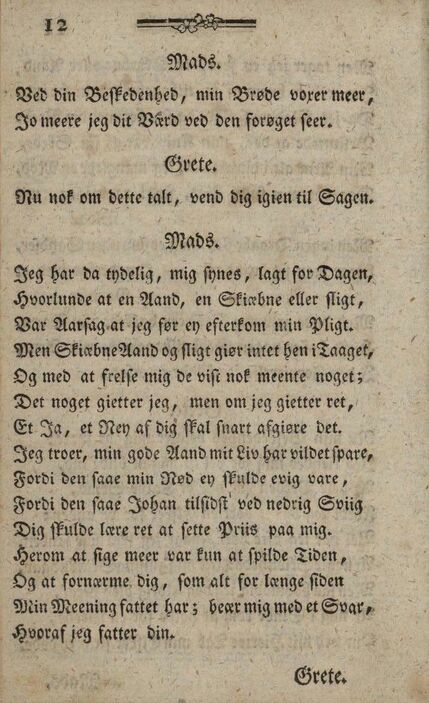 12
Mads.
Ved din Beskedenhed, min Brøde voxer meer,
Jo meere jeg dit Værd ved den forøget seer.
Grete.
Nu nok om dette talt, vend dig igien til Sagen.
Mads.
Jeg har da tydelig, mig synes, lagt for Dagen,
Hvorlunde at en Aand, en Skiæbne eller sligt,
Var Aarsag at jeg før ey efterkom min Pligt.
Men Skiæbne Aand og sligt giør intet hen i Taaget,
Og med at frelse mig de vist nok meente noget;
Det noget gietter jeg, men om jeg gietter ret,
Et Ja, et Ney af dig skal snart afgiøre det.
Jeg troer, min gode Aand mit Liv har vildet spare,
Fordi den saae min Nød ey skulde evig vare,
Fordi den saae Johan tilsidst ved nedrig Sviig
Dig skulde lære ret at sette Priis paa mig.
Herom at sige meer var kun at spilde Tiden,
Og at fornærme dig, som alt for længe siden
Min Meening fattet har; beær mig med et Svar,
Hvoraf jeg fatter din.
Grete.